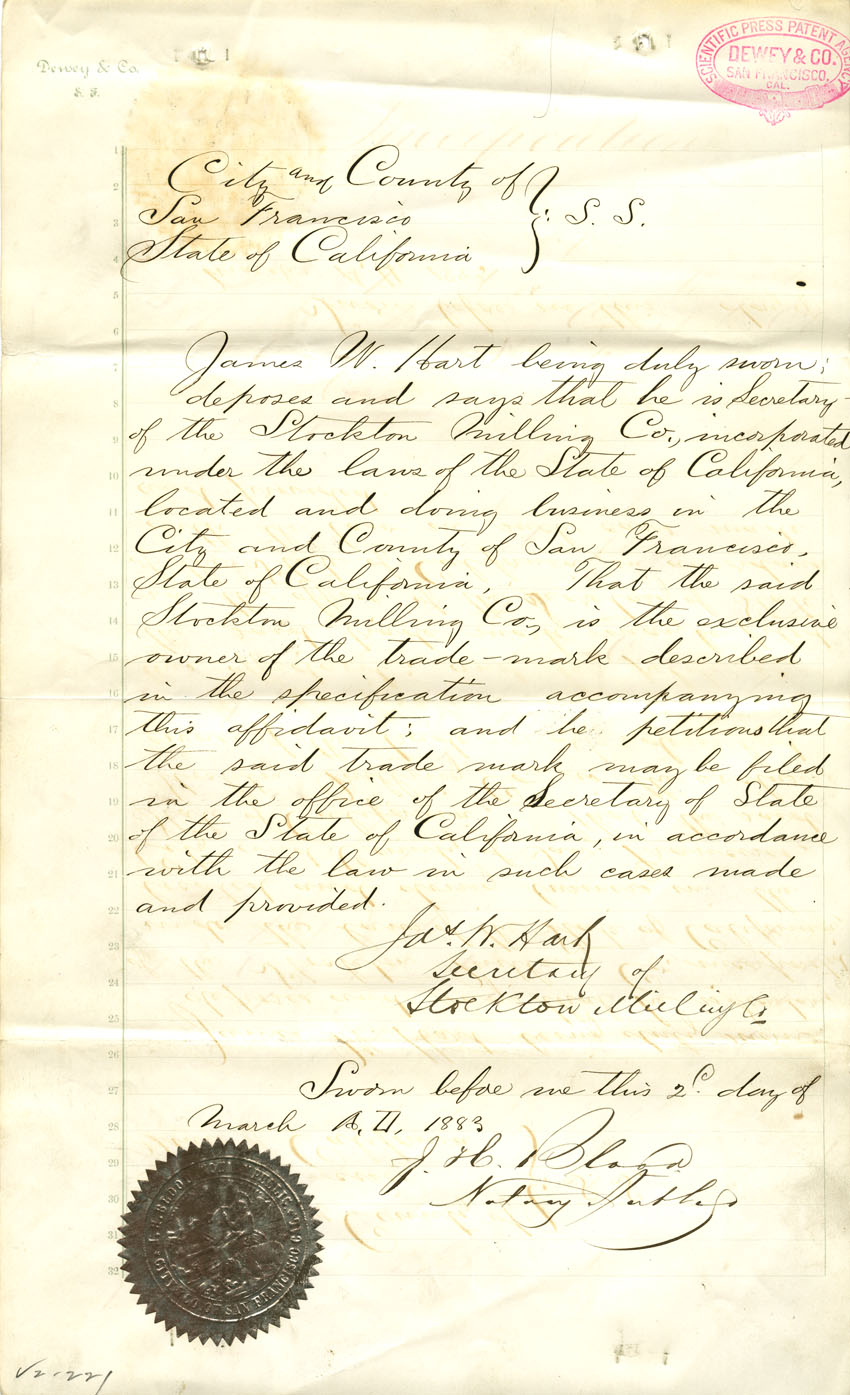 Dewey & Co.
S. F.
SCIENTIFIC PRESS PATENT AGENCY
DEWEY & CO.
SAN FRANCISCO,
CAL.
City and County of
San Francisco } : S. S.
State of California
James W. Hart being duly sworn;
deposes and says that he is Secretary
of the Stockton Milling Co., incorporated
under the laws of the State of California,
located and doing business in the
City and County of San Francisco,
State of California, That the said
Stockton Milling Co., is the exclusive
owner of the trade-mark described
in the specification accompanying
this affidavit; and he petitions that
the said trade mark may be filed
in the office of the Secretary of State
of the State of California, in accordance
with the law in such cases made
and provided.
Jas. W. Hart
Secretary of
Stockton Milling Co
Sworn before me this 2d. day of
March A. D, 1883
J. H.
Notary Public
CITY & CO. OF SAN FRANCISCO CAL.
1
2
3
4
5
6
7
8
9
10
11
12
13
14
15
16
17
18
19
20
21
22
23
24
25
26
27
28
29
30
31
32
V2-221